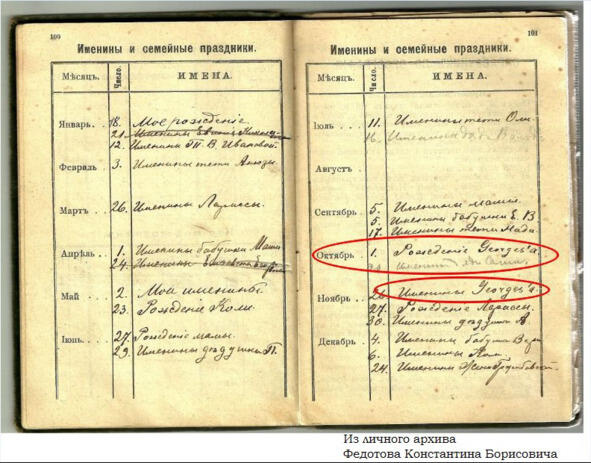 100
Именины и семейные праздники.
Мѣсяцъ. Число. ИМЕНА.
Январь 18. Мое рожденіе
21. Именины
12. Именины Т. В. Ивановой
Февраль 3. Именины тети Анюты.
Мартъ 26. Именины Ларисы.
Апрѣль 1. Именины бабушки Маши
24. Именины
Май 2. Мои именины
23. Рожденіе Коли.
Іюнь 27. Рожденіе мамы.
29. Именины дѣдушки П.
101
Именины и семейные праздники.
Мѣсяцъ. Число. ИМЕНА.
Іюль 11. Именины тети Оли.
16. Именины
Августъ
Сентябрь 5. Именины мамы.
5. Именины бабушки Е. В
17. Именины тети Нади.
Октябрь 1. Рожденіе Georges'а.
Именины
Ноябрь 26. Именины Georges'а.
27. Рожденіе Ларисы.
30. Именины дѣдушки А.
Декабрь 4. Именины бабушки Вари
6. Именины Коли.
24. Именины
Из личного архива
Федотова Константина Борисовича